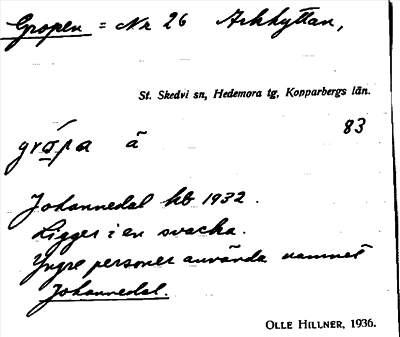 Gropen = Nr 26 Arkhyttan,
St. Skedvi sn, Hedemora tg, Kopparbergs län.
83
grópa ä
Johannedal hb 1932.
Ligger i en svacka.
Yngre personer använda namnet
Johannedal.
OLLE HILLNER, 1936.